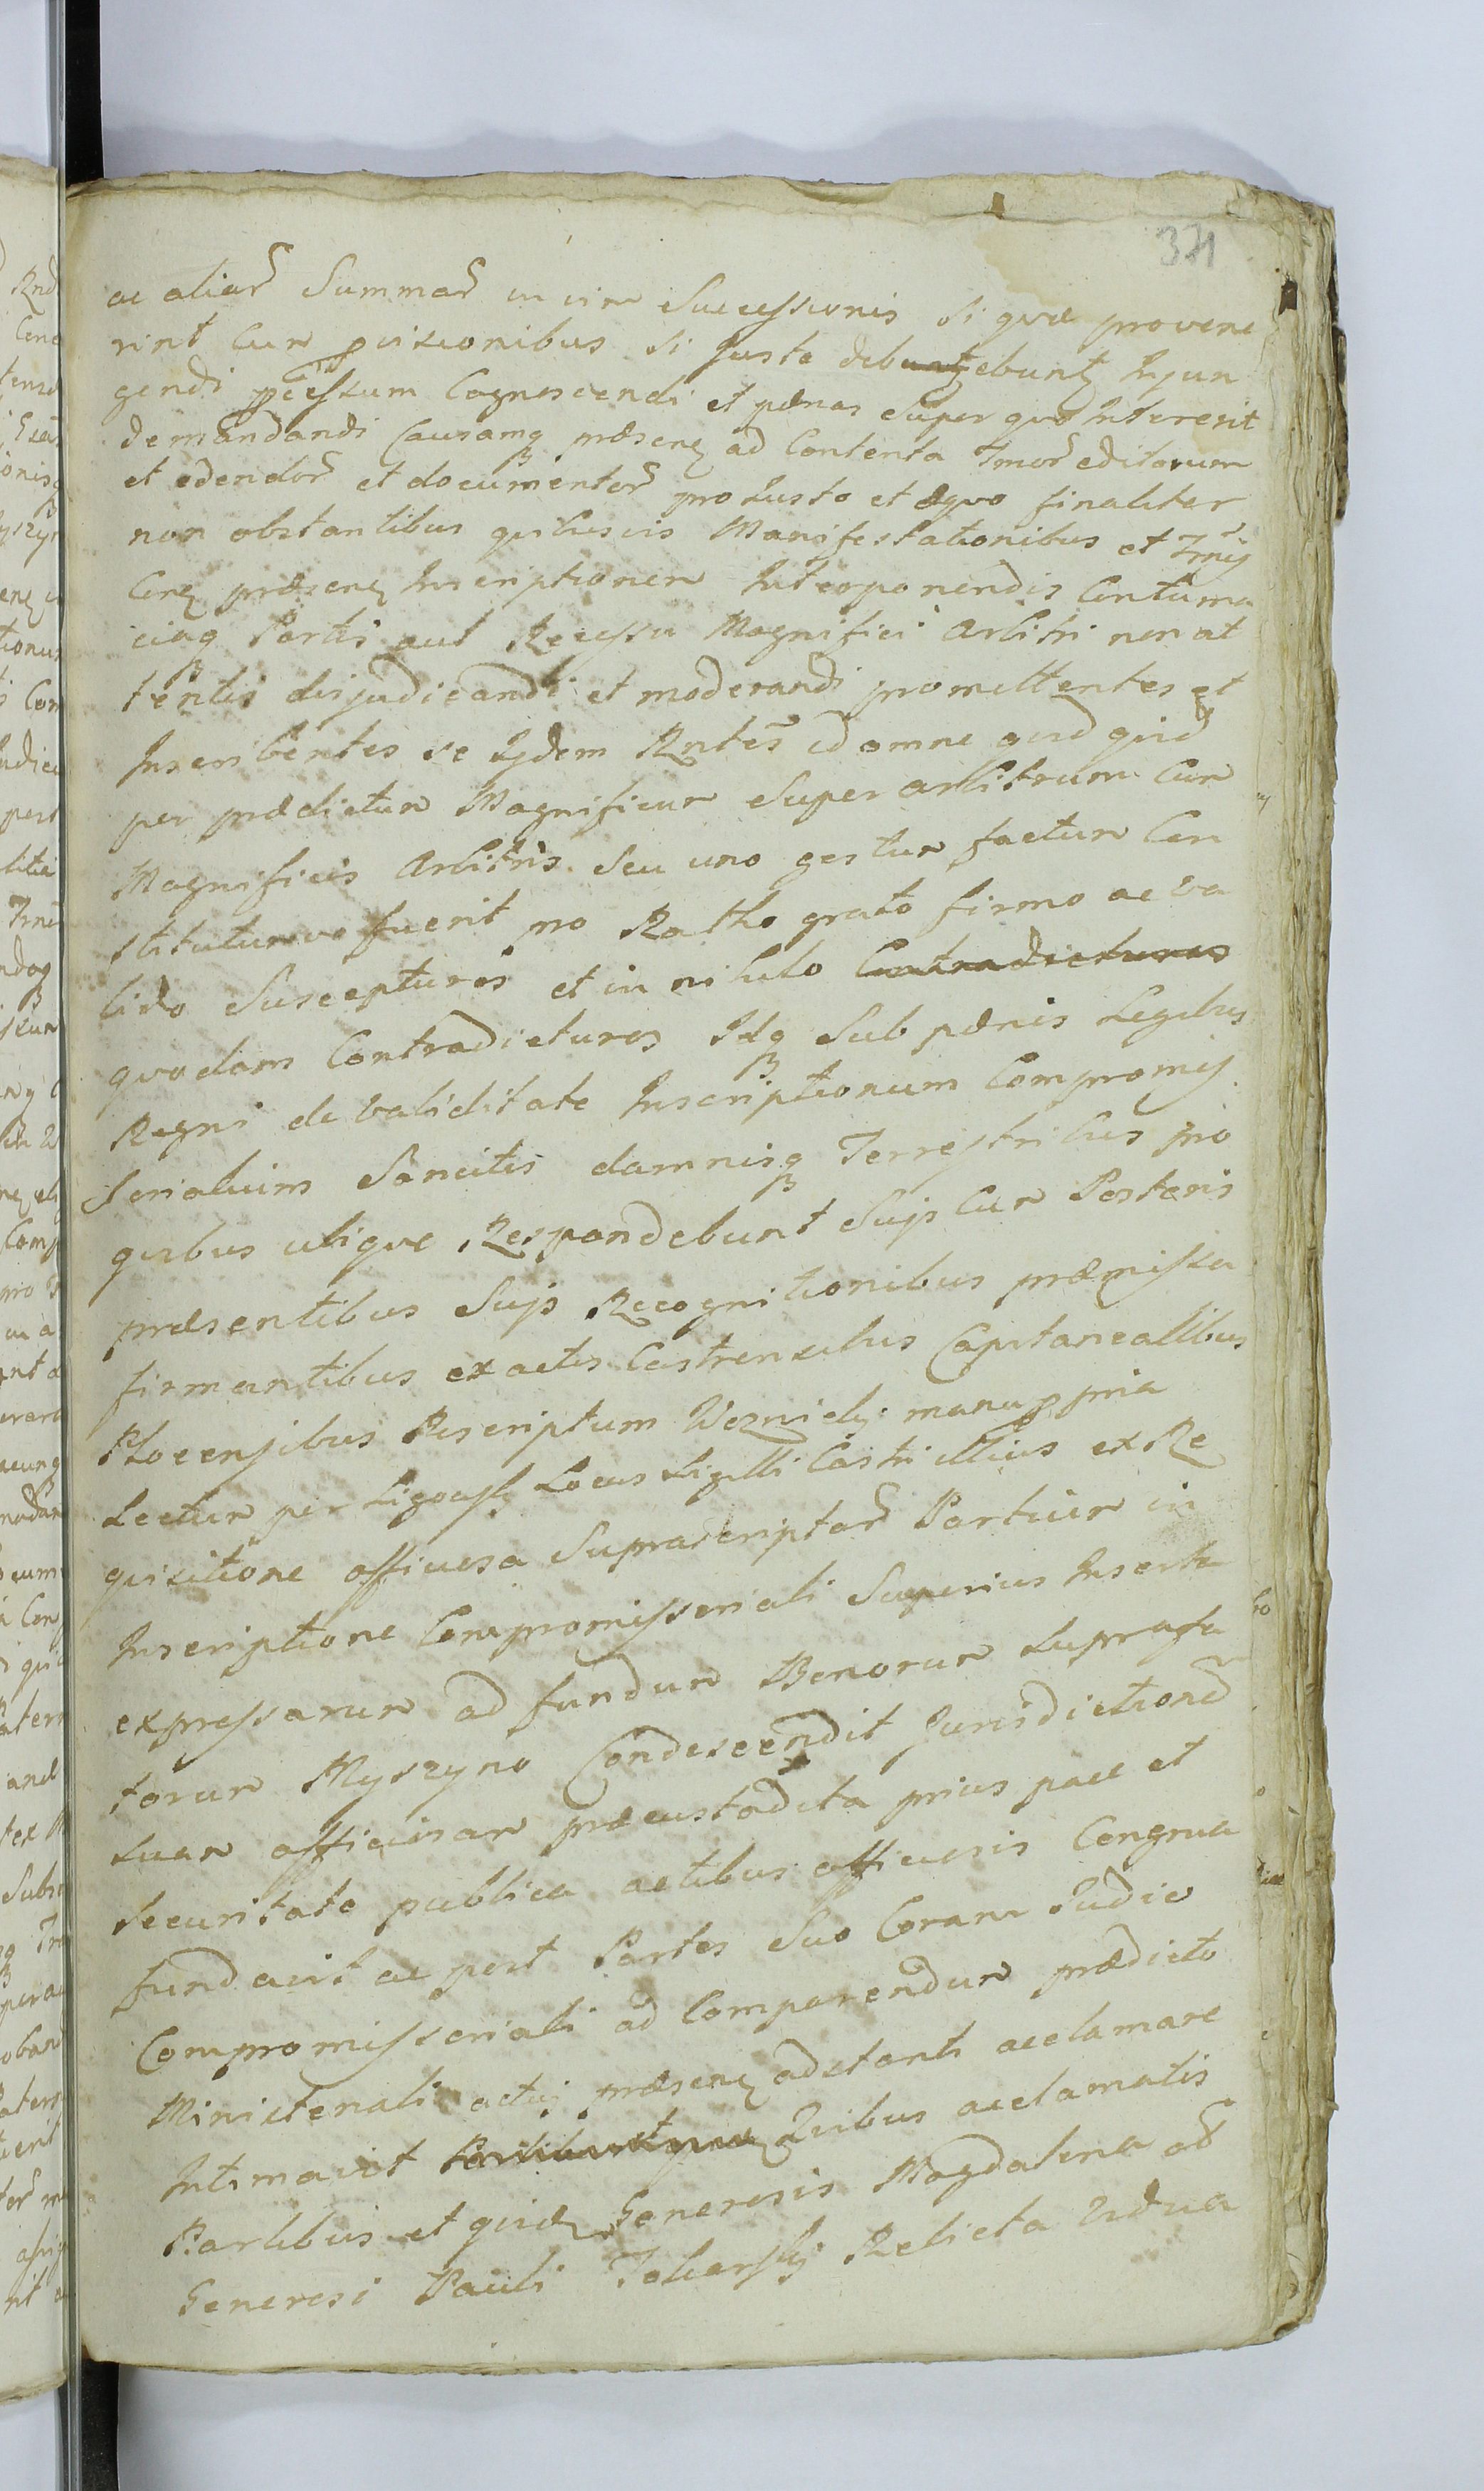 371
ac aliar Summar in vim Successionis si quæ provene
rint Cum provisionibus si Juste debuntz ebuntz Injun
gendi pcessum Cognoscendi et pœnas Super quo Intererit
demandandi Causamq præsenz ad Contenta Tmor editorum
et edendor et documentor pro Justo et æquo finaliter
non obstantibus quibusvis Manifestationibus et Tmij
Conz præsenz Inscriptionem Interponendis Contuma
ciaq Partis aut Recessu Magnifici Arbitri non at
tentis disjudicandi et moderandi promittentes et
Inscribentes se Ijdem Rntes id omne quid quid
per prædictum Magnificum Superarbitrum Cum
Magnificis Arbitris seu uno gestum factum Con
stitutumve fuerit pro Ratho grato firmo ac va
lido Suscepturos et in nihilo Contradicturos
quodam Contradicturos Idq Sub pœnis Legibus
Regni de validitate Inscriptionum Compromis
serialium Sancitis damnisq Terrestribus pro
quibus ubique Respondebunt Suis Cum Posteris
præsentibus Suis Recognitionibus præmissa
firmantibus ex actis Castrensibus Capitanealibus
Plocensibus Rescriptum Woznicky manu ppria
Lectum per Ligowsk Locus Sigilli Castri illius ex Re
quisitione officiosa Suprascriptar Partium in
Inscriptione Compromisseriali Superius Inserta
expressarum ad fundum Bonorum Suprafa
torum Myszyno Condescendit Jurisdictioned
suam officiosam præcustodita prius pace et
securitate publica actibus officiosis Congrua
fundavit ac post Partes Suo Coram Judicio
Compromisseriali ad Comparendum prædicto
Ministeriali actui præsenz adstanti acclamare
Intimavit Quibus acclamatis
Partibus et quidz Generosis Magdalena ol
Generosi Pauli Relicta Vidua